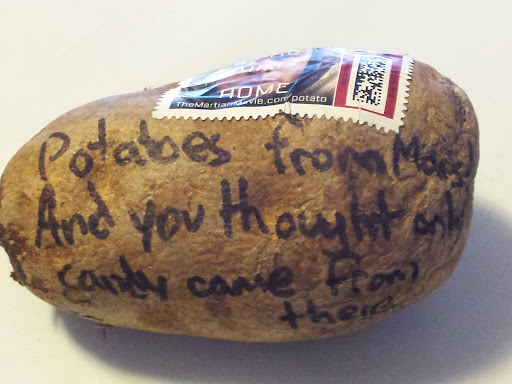 HOME
TheMartianMovie.com/potato
Potatoes from Mars!
And you thought only
candy came from
there.